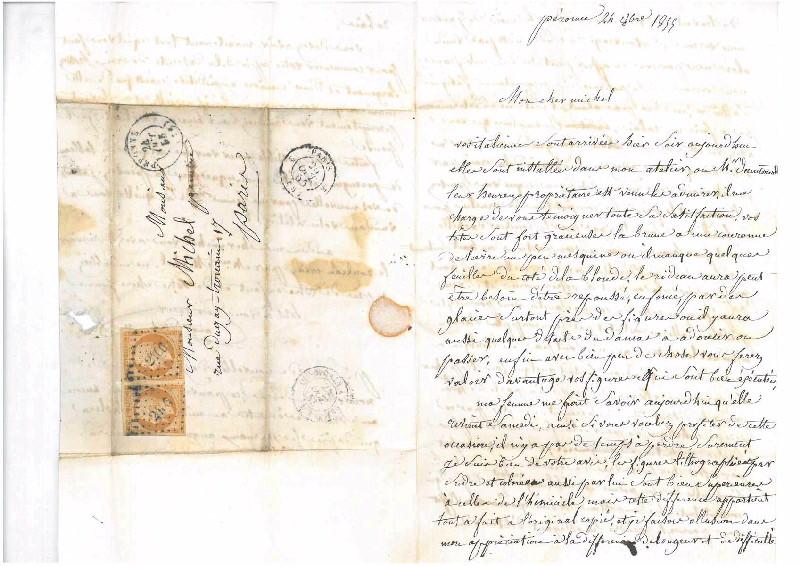 péronne 24 8bre 1855
Mon cher michel
vos italienne sont arrivée hier soir aujourd'hui
elle sont installée dans mon atelier, ou Mr
leur heureux propriétaire est venu les admirer, il me
charge de vous témoigner toute sa satisfaction, vos
tête sont fort gracieuse la brune a une couronne
de lierre un peu mesquine ou il manque quelques
feuilles du coté de la blonde, le rideau aura peut
être besoin d'être repoussé, enfoncé, par des
glacis surtout près des figures ou il y aura
aussi quelque détails du damas a adoucir ou
passer, enfin avec bien peu de chose vous ferez
valoir davantage vos figures qui sont bien éxécutées
ma femme me fait savoir aujourd'hui qu'elle
revient Samedi, ainsi si vous voulez profiter de cette
occasion, il n'y a pas de temps à perdre surement
je suis bien de votre avis, les figures lithographiées par
et aussi par lui sont bien supérieures
à celles de l'hémicicle mais cete différence appartient
tout a fait a l'original copié, et je faisois allusion dans
mon appréciation à la différence de longueur et de difficulté
Monsieur
Monsieur Michel
rue Dugay-trouin 17
paris
PERONNE
PARIS